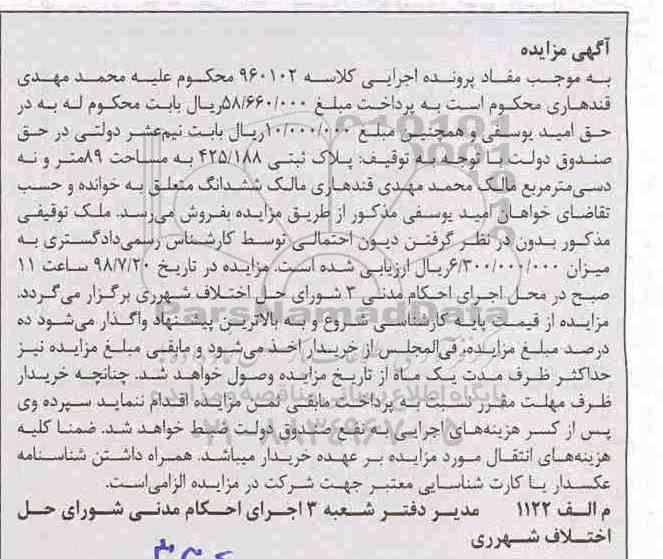 آگهی مزایده
به موجب مفاد پرونده اجرایی کلاسه ۹۶۰۱۰۲ محکوم علیه محمد مهدی
قندهاری محکوم است به پرداخت مبلغ ۵۸/۶۶۰/۰۰۰ریال بابت محکوم له به در
حق امید یوسفی و همچنین مبلغ ۱۰/۰۰۰/۰۰۰ریال بابت نیم‌عشر دولتی در حق
صندوق دولت با توجه به توقیف: پلاک ثبتی ۴۲۵/۱۸۸ به مساحت ۸۹متر و نه
دسی‌مترمربع مالک محمد مهدی قندهاری مالک ششدانگ متعلق به خوانده و حسب
تقاضای خواهان امید یوسفی مذکور از طریق مزایده بفروش می‌رسد. ملک توقیفی
مذکور بدون در نظر گرفتن دیون احتمالی توسط کارشناس رسمی‌دادگستری به
میزان ۶/۳۰۰/۰۰۰/۰۰۰ریال ارزیابی شده است. مزایده در تاریخ ۹۸/۷/۲۰ ساعت ۱۱
صبح در محل اجرای احکام مدنی ۳ شورای حل اختلاف شهرری برگزار می‌گردد.
مزایده از قیمت پایه کارشناسی شروع و به بالاترین پیشنهاد واگذار می‌شود ده
درصد مبلغ مزایده، فی‌المجلس از خریدار اخذ می‌شود و مابقی مبلغ مزایده نیز
حداکثر ظرف مدت یک ماه از تاریخ مزایده وصول خواهد شد. چنانچه خریدار
ظرف مهلت مقرر نسبت به پرداخت مابقی ثمن مزایده اقدام ننماید سپرده وی
پس از کسر هزینه‌های اجرایی به نفع صندوق دولت ضبط خواهد شد. ضمنا کلیه
هزینه‌های انتقال مورد مزایده بر عهده خریدار میباشد. همراه داشتن شناسنامه
عکسدار یا کارت شناسایی معتبر جهت شرکت در مزایده الزامی‌است.
م الف ۱۱۲۲ مدیر دفتر شعبه ۳ اجرای احکام مدنی شورای حل
اختلاف شهرری
ParsNamadData
پایگاه اطلاع رسانی مناقصه و مزایده